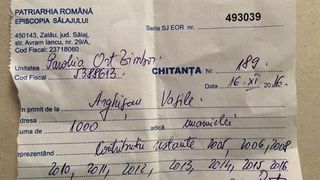 PATRIARHIA ROMÂNĂ
EPISCOPIA SĂLAJULUI
Seria SJ EOR nr. 493039
450143, Zalău, jud. Sălaj,
str. Avram Iancu, nr. 29/A,
Cod Fiscal: 23718060
Unitatea Parohia Ort Zimbor
Cod Fiscal 5388613
CHITANȚA Nr. 189
Data 16. XI 2016
Am primit de la Arghișan Vasile
Adresa
Suma de 1000 adică unamielei
Reprezentând Contributii restante 2005, 2006, 2008
2010, 2011, 2012, 2013, 2014, 2015 2016